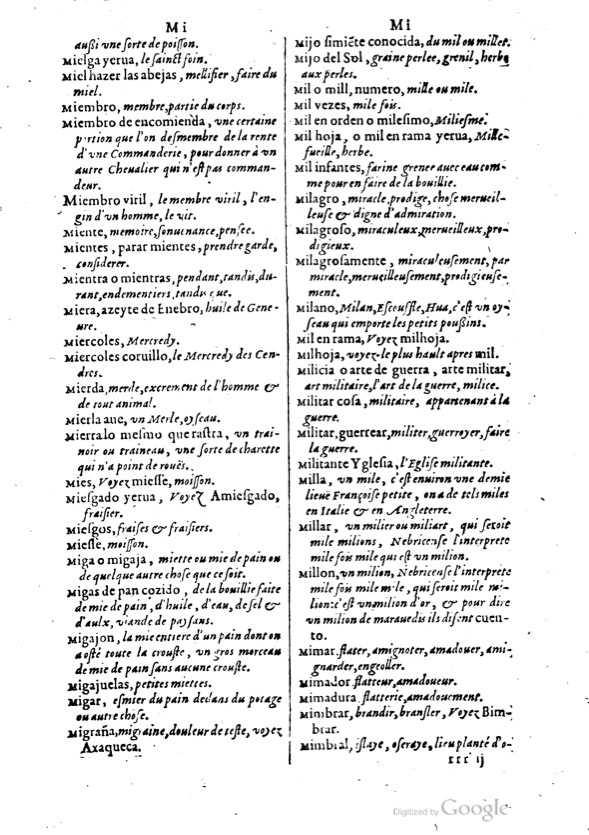 Mi
außi vne sorte de poisson.
Mielga yerua, le sainct foin.
Miel hazer las abejas, mellifier, faire du
miel.
Miembro, membre, partie du corps.
Miembro de encomienda, vne certaine
portion que l'on desmembre de la rente
d'vne Commanderie, pour donner à vn
autre Cheualier qui n'est pas comman-
deur.
Miembro viril, le membre viril, l'en-
gin d'vn homme, le vit.
Miente, memoire, souuenance, pensee.
Mientes, parar mientes, prendre garde,
considerer.
Mientra o mientras, pendant, tandis, du-
rant, endementiers, tandis que.
Miera, azeyte de Enebro, huile de Gene-
ure.
Miercoles, Mercredy.
Miercoles coruillo, le Mercredy des Cen-
dres.
Mierda, merde, excrement de l'homme &
de tout animal.
Mierla aue, vn Merle, oyseau.
Mierra lo mesmo que rastra, vn trai-
noir ou traineau, vne sorte de charette
qui n'a point de rouës.
Mies, Voyez miesse, moisson.
Miesgado yerua, Voyez Amiesgado,
fraisier.
Miesgos, fraises & fraisiers.
Miesse, moisson.
Miga o migaja, miette ou mie de pain ou
de quelque autre chose que ce soit.
Migas de pan cozido, de la bouillie faite
de mie de pain, d'huile, d'eau, de sel &
d'aulx, viande de paysans.
Migajon, la mie entiere d'vn pain dont on
a osté toute la crouste, vn gros morceau
de mie de pain sans aucune crouste.
Migajuelas, petites miettes.
Migar, esmier du pain dedans du potage
ou autre chose.
Migraña, migraine, douleur de teste, voyez
Axaqueca.
Mi
Mijo simiẽte conocida, du mil ou millet.
Mijo del Sol, graine perlee, grenil, herbe
aux perles.
Mil o mill, numero, mille ou mile.
Mil vezes, mile fois.
Mil en orden o milesimo, Miliesme.
Mil hoja, o mil en rama yerua, Mille-
fueille, herbe.
Mil infantes, farine grenee auec eau com-
me pour en faire de la bouillie.
Milagro, miracle, prodige, chose merueil-
leuse & digne d'admiration.
Milagroso, miraculeux, merueilleux, pro-
digieux.
Milagrosamente, miraculeusement, par
miracle, merueilleusement, prodigieuse-
ment.
Milano, Milan, Escouffle, Hua, c'est vn oy-
seau qui emporte les petits poußins.
Mil en rama, Voyez milhoja.
Milhoja, voyez-le plus hault apres mil.
Milicia o arte de guerra, arte militar,
art militaire, l'art de la guerre, milice.
Militar cosa, militaire, appartenant à la
guerre.
Militar, guerrear, militer, guerroyer, faire
la guerre.
Militante Yglesia, l'Eglise militante.
Milla, vn mile, c'est enuiron vne demie
lieuë Françoise petite, on a de tels miles
en Italie & en Angleterre.
Millar, vn milier ou miliart, qui seroit
mile milions, Nebricense l'interprete
mile fois mile qui est vn milion.
Millon, vn milion, Nebricense l'interprete
mile fois mile mile, qui seroit mile mi-
lions: c'est vn milion d'or, & pour dire
vn milion de marauedis ils disent cuen-
to.
Mimar, flater, amignoter, amadouer, ami-
gnarder, engeoller.
Mimador, flatteur, amadoueur.
Mimadura, flatterie, amadouement.
Mimbrar, brandir, bransler, Voyez Bim-
brar.
Mimbral, islaye, oseraye, lieu planté d'o-
xxx ij
Digitized by Google